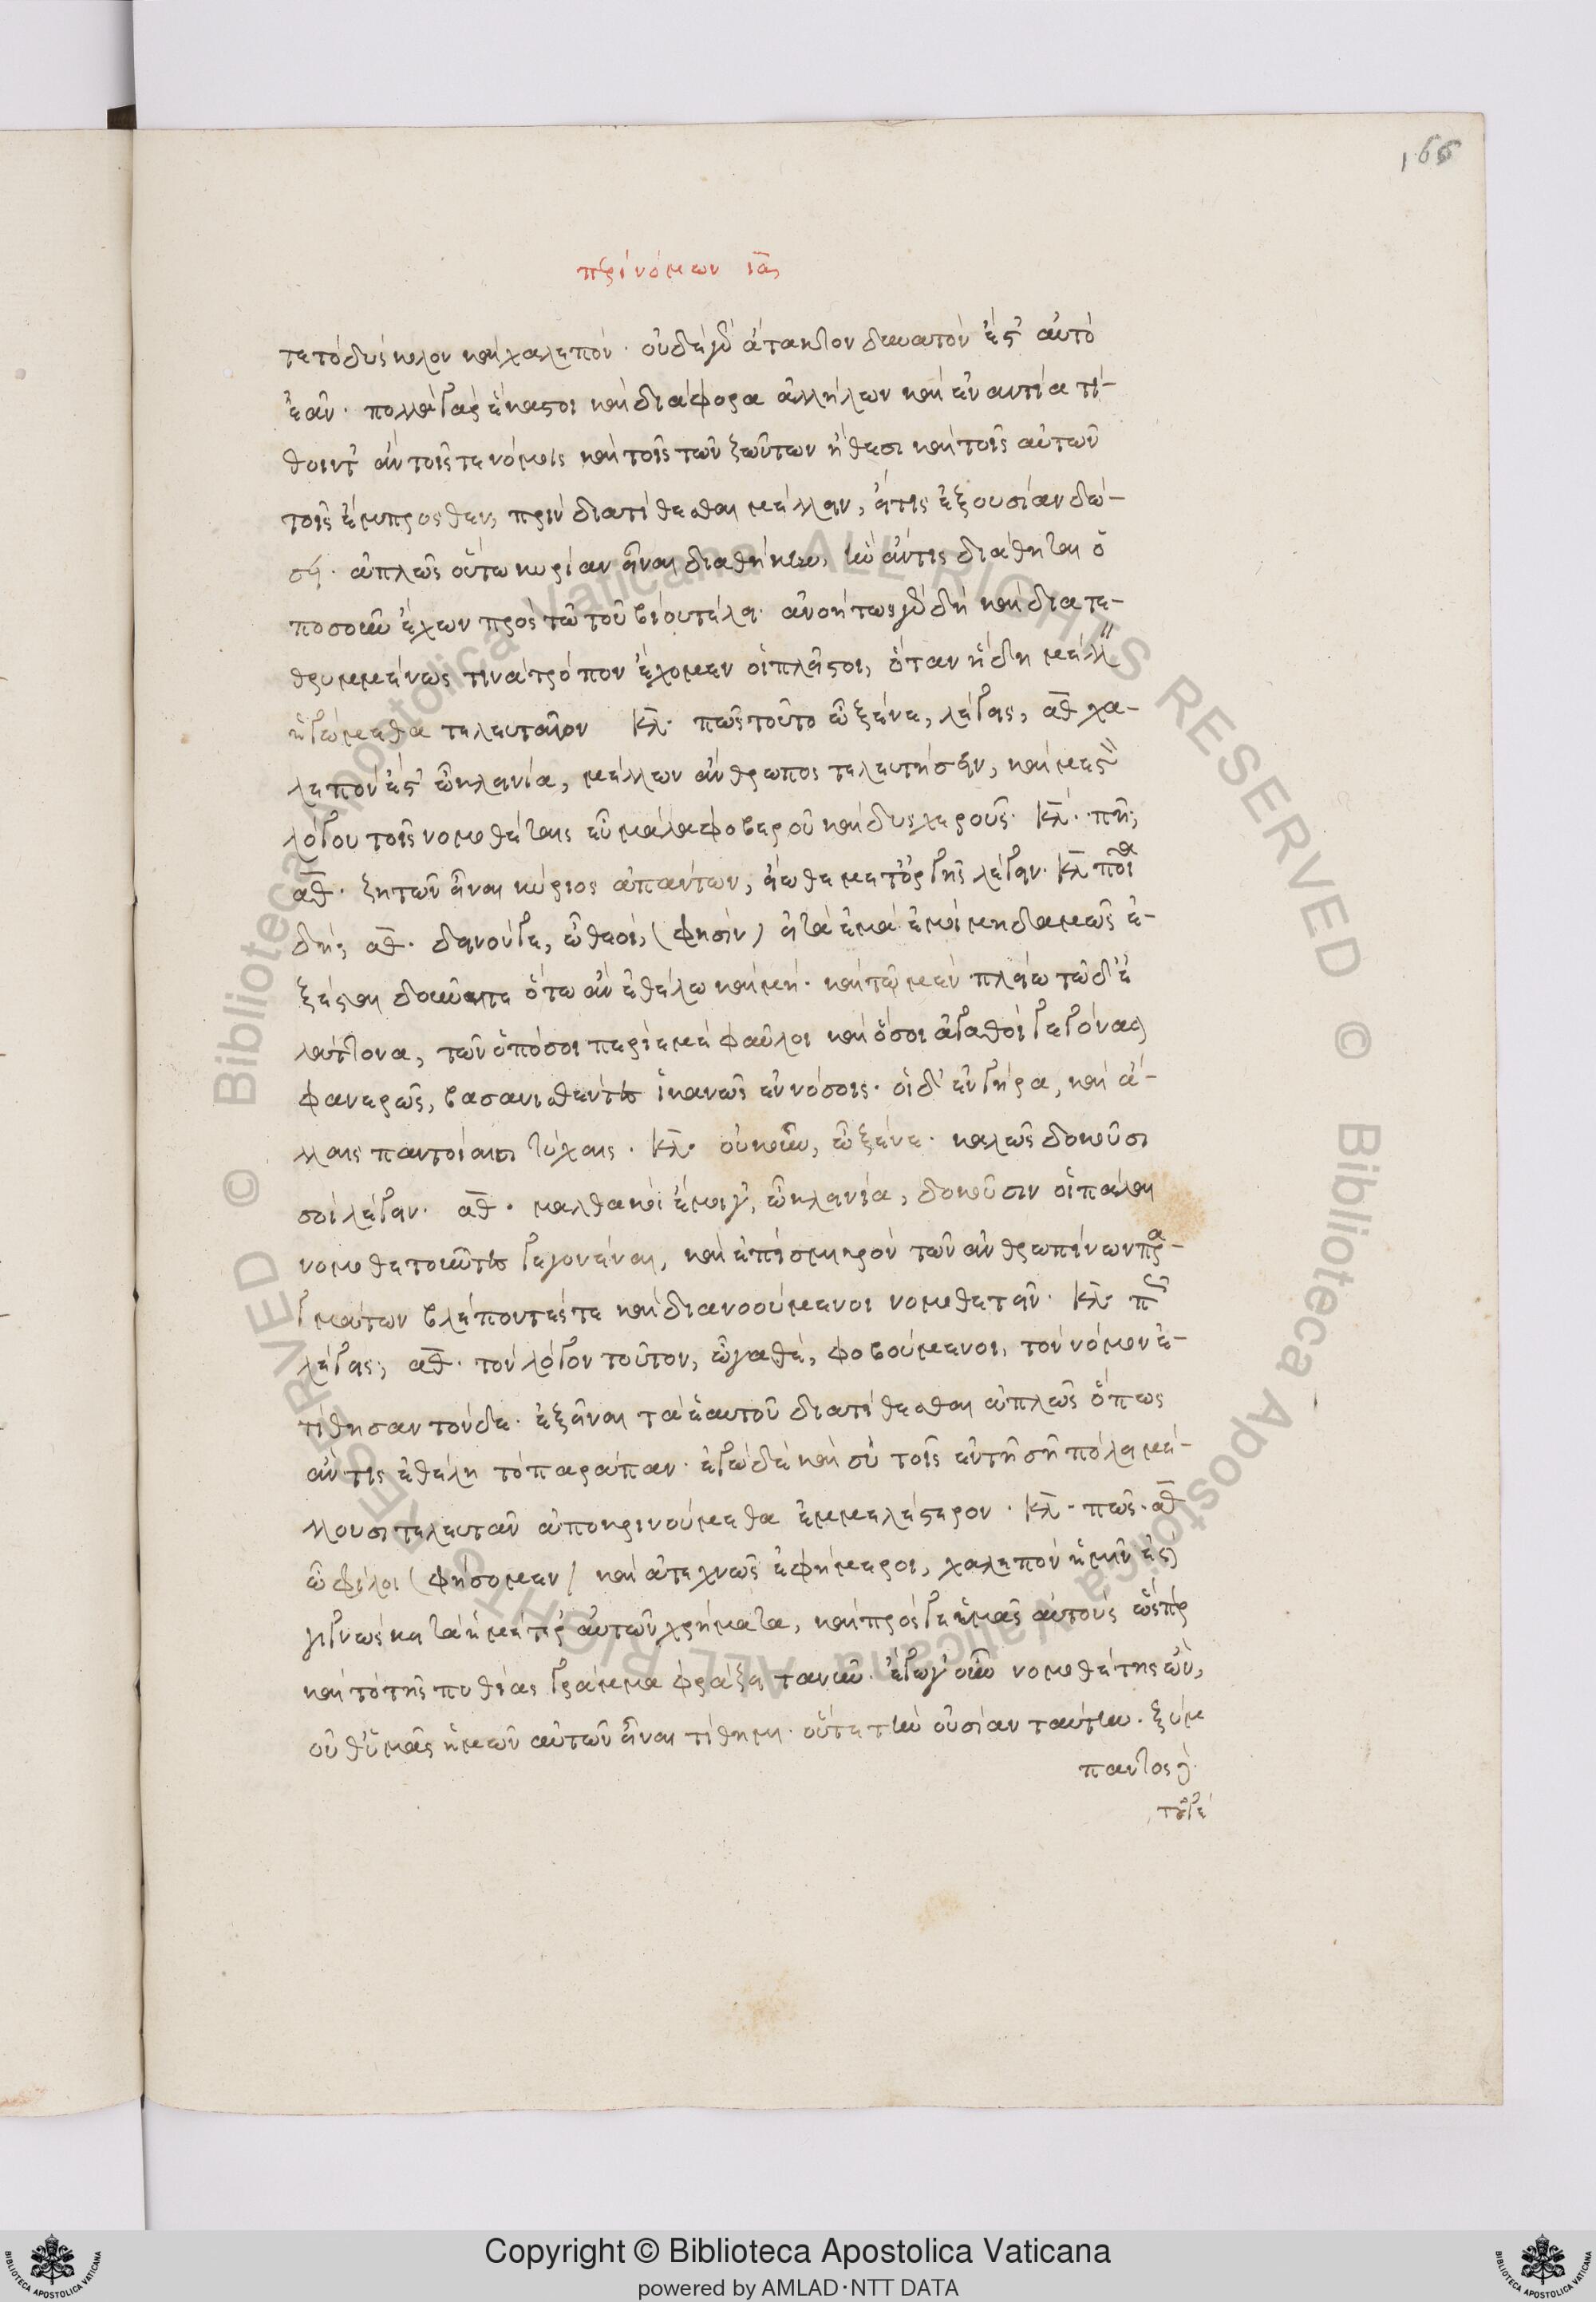 166
περὶ νόμων ια
τε τὸ δύσκολον καὶ χαλεπόν. οὐδὲ γὰρ ἄτακτον δυνατὸν ἔστ' αὐτὸ
ἐᾶν. πολλὰ γὰρ ἕκαστοι καὶ διάφορα ἀλλήλων καὶ ἐναντία τι-
θοῖντ' ἂν τοῖς τε νόμοις καὶ τοῖς τῶν ζώντων ἤθεσι καὶ τοῖς αὑτῶν
τοῖς ἔμπροσθεν, πρὶν διατίθεσθαι μέλλειν, εἴ τις ἐξουσίαν δώ-
σει. ἁπλῶς οὕτω κυρίαν εἶναι διαθήκην, ἣν ἄν τις διάθηται ὁ
ποσοῦν ἔχων πρὸς τῷ τοῦ βίου τέλει. ἀνοήτως γὰρ δὴ καὶ διατε-
θρυμμένως τινὰ τρόπον ἔχομεν οἱ πλεῖστοι, ὅταν ἤδη μέλλειν
ἡγώμεθα τελευτᾶιον κλ. πῶς τοῦτο ὦ ξένε, λέγεις, αθ χα-
λεπὸν ἔστ' ὦ κλεινία, μέλλων ἄνθρωπος τελευτήσειν, καὶ μεστὸν
λόγου τοῖς νομοθέταις εὖ μάλα φοβεροῦ καὶ δυσχεροῦς. κλ. πῆ;
αθ. ζητῶν εἶναι κύριος ἁπάντων, εἴωθε μετ' ὀργῆς λέγειν. κλ ποῖα
δή; αθ. δεινόν γε, ὦ θεοί, (φησίν) εἰ τὰ ἐμὰ ἐμοὶ μηδαμῶς ἐ-
ξέσται δοῦναί τε ὅτω ἂν ἐθέλω καὶ μή. καὶ τῷ μὲν πλείω τῷ δ' ἐ
λάττονα, τῶν ὁπόσοι περὶ ἐμὲ φαῦλοι καὶ ὅσοι ἀγαθοὶ γεγόνασι
φανερῶς, βασανισθέντες ἱκανῶς ἐν νόσοις. οἱ δ' ἐν γήρα, καὶ ἄ-
λλαις παντοίαισι τύχαις. κλ. οὐκοῦν, ὦ ξένε. καλῶς δοκοῦσι
σοι λέγειν. αθ. μαλθακοὶ ἔμοιγ', ὦ κλεινία, δοκοῦσιν οἱ πάλαι
νομοθετοῦντες γεγονέναι, καὶ ἐπὶ σμικρὸν τῶν ἀνθρωπίνων πρα-
γμάτων βλέποντές τε καὶ διανοούμενοι νομοθετεῖν. κλ πῶς
λέγεις; αθ. τὸν λόγον τοῦτον, ὦγαθέ, φοβούμενοι, τὸν νόμον ἐ-
τίθησαν τόνδε. ἐξεῖναι τὰ ἑαυτοῦ διατίθεσθαι ἁπλῶς ὅπως
ἄν τις ἐθέλη τὸ παράπαν. ἐγὼ δὲ καὶ σὺ τοῖς ἐν τῇ σῇ πόλει μέ-
λλουσι τελευτᾶν ἀποκρινούμεθα ἐμμελέστερον. κλ. πῶς. αθ
ὦ φίλοι (φήσομεν) καὶ ἀτεχνῶς ἐφήμεροι, χαλεπὸν ἡμῖν ἐστι
γιγνώσκει τὰ ἡμέτερ' αὐτῶν χρήματα, καὶ πρός γε ἡμᾶς αὐτούς ὥσπερ
καὶ τὸ τῆς πυθίας γράμμα φράζει τανῦν. ἔγωγ' οὖν νομοθέτης ὤν,
οὔθ' ὑμᾶς ἡμῶν αὐτῶν εἶναι τίθημι. οὔτε τὴν οὐσίαν ταύτην. ξύμ
παντος δὲ
τοῦ γέ
Copyright © Biblioteca Apostolica Vaticana
powered by AMLAD·NTT DATA